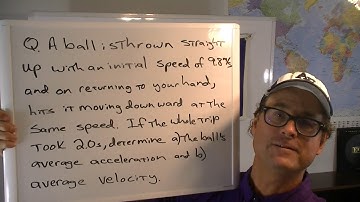 Q. A ball is thrown straight
up with an initial speed of 9.8 m/s
and on returning to your hand,
hits it moving downward at the
same speed. If the whole trip
took 2.0s, determine a) the ball's
average acceleration and b)
average velocity.